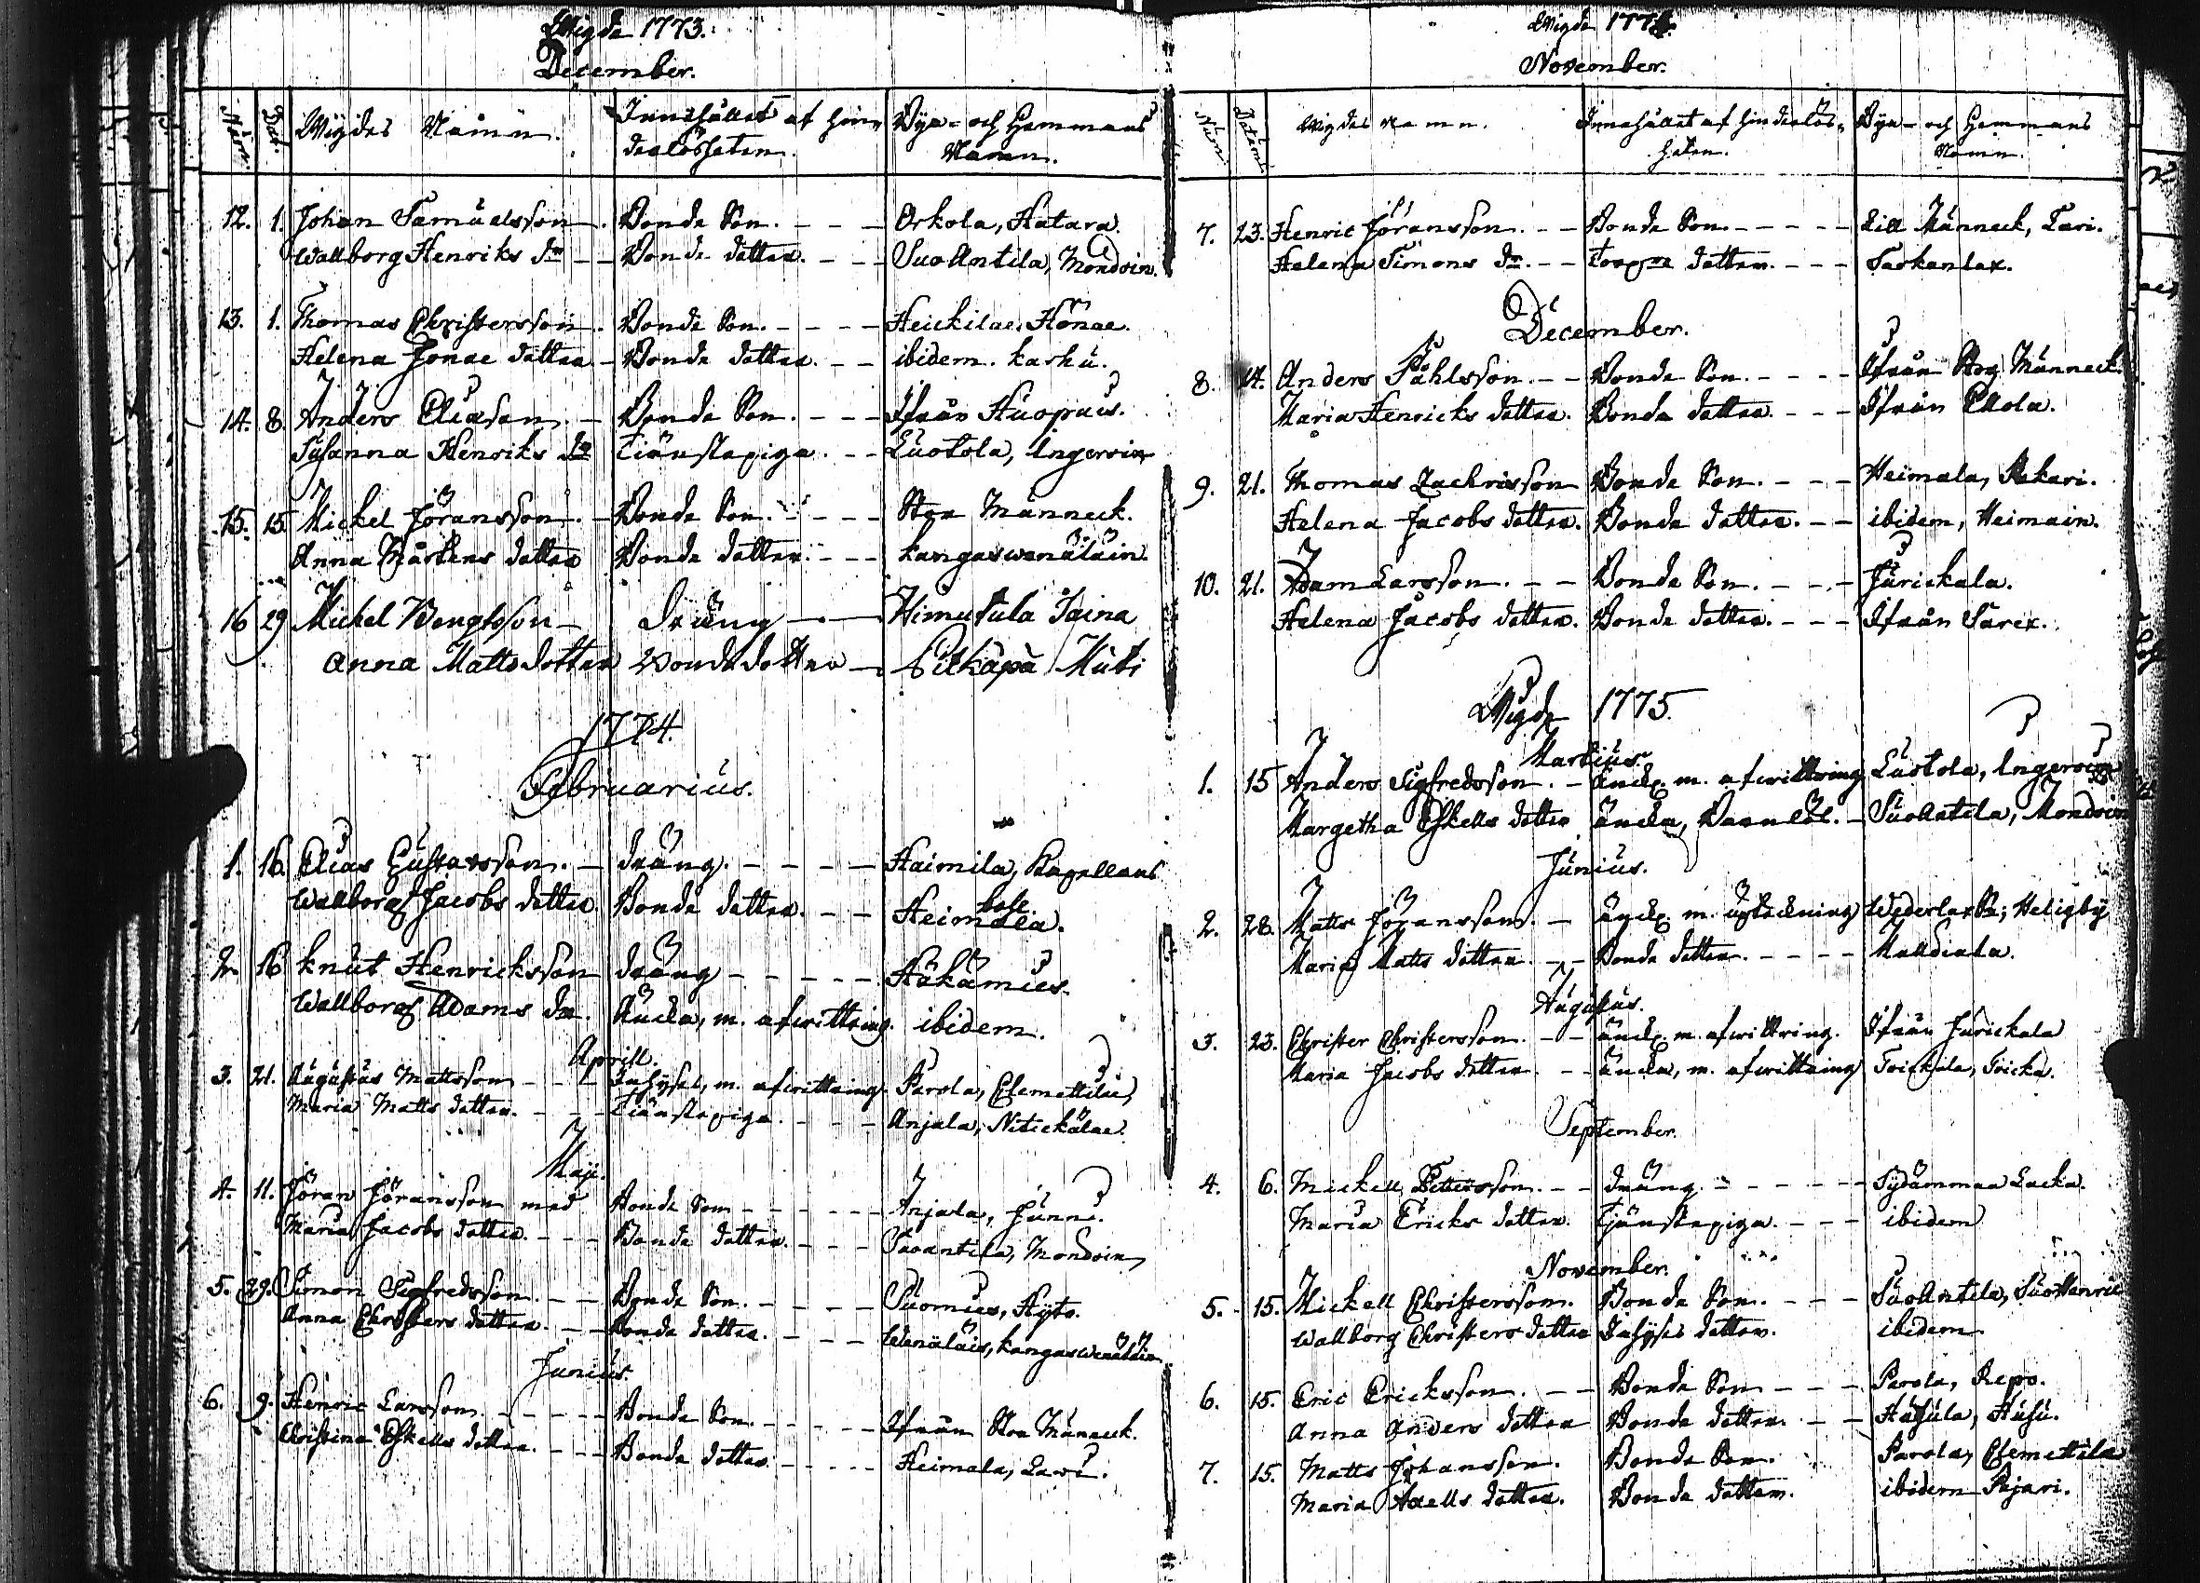 Wigde 1773.
December.
Num. Dat. Wigdes Namn. Innehållet af hin- Bya- och Hemmans
derlösheten. Namn.
12. 1. Johan Samuelsson. Bonde Son. Orkola, Hatara.
Wallborg Henriks dr Bonde dotter. Suo Antila, Mondoin.
13. 1. Thomas Christersson. Bonde Son. Heickilae, Hönae.
Helena Jonae dotter Bonde dotter. ibidem. Karhu.
14. 8. Anders Eliasson. Bonde Son. Ifrån Huopais.
Susanna Henriks dr Tiänstepiga. Luotola, Ingeroin
15. 15. Mickel Jöransson. Bonde Son. Stor Männeck.
Anna Mårtens dotter Bonde dotter. Kangaswenäläin.
16 29 Michel Bengtsson Dräng Himutula
Anna Matts dotter Bonde dotter Pilkapä
1774.
Februarius.
1. 16. Elias Gustavsson. dräng. Haimila, Kapellans
bole
Wallborg Jacobs dotter. Bonde dotter. Heimala.
2. 16 Knut Henricksson dräng Häkämies.
Wallborg Adams dr. Äncka, m. afwittring. ibidem.
Aprill.
3. 21. Augustus Mattsson Inhyses, m. afwittring. Parola, Clemettilae,
Maria Matts dotter. Tiänstepiga. Anjala, Nitickälae.
Maji.
4. 11. Jöran Jöransson med Bonde Son Anjala, Junni.
Maria Jacobs dotter. Bonde dotter. Suoantila, Mondoin
5. 29. Simon Sigfredsson. Bonde Son. Suomies, Hyto.
Anna Christers dotter. Bonde dotter. Wenäläis, Kangaswenäläin
Junius.
6. 9. Henric Larsson. Bonde Son. Ifrån Stor Männeck.
Christina Eskells dotter. Bonde dotter. Heimala,
Wigde 1774.
November.
Num Datum Wigdes Namn. Innehållet af hinderlös- Bya- och Hemmans
heten. Namn.
7. 23. Henric Jöransson. Bonde Son. Lill Männeck, Lari.
Helena Simons dr. dotter. Taskanlax.
December.
8. 14. Anders Påhlsson. Bonde Son. Ifrån Stor Männeck.
Maria Henricks dotter. Bonde dotter. Ifrån
9. 21. Thomas Zachrisson Bonde Son. Heimala, Pekari.
Helena Jacobs dotter. Bonde dotter. ibidem, Heimain.
10. 21. Adam Larsson. Bonde Son. Jurickala.
Helena Jacobs dotter. Bonde dotter. Ifrån
Wigde 1775.
Martius.
1. 15 Anders Sigfredsson. änckl. m. afwittring Luotola, Ingeroin
Margetha Eskells dotter äncka, Barnlös. Suoantila, Mondoin
Junius.
2. 28. Matts Jöransson. änckl. m. upteckning Wederlax Sn, Heligby
Maria Matts dotter. Bonde dotter.
Augustus.
3. 23. Christer Christersson. änckl. m. afwittring. Ifrån Jurickala
Maria Jacobs dotter. äncka, m. afwittring
September.
4. 6. Mickell Pettersson. dräng. Sydämmaa Lacka.
Maria Ericks dotter. Tjänstepiga. ibidem
November.
5. 15. Mickell Christersson. Bonde Son. SuoAntila,
Wallborg Christers dotter Inhyses dotter. ibidem.
6. 15. Eric Ericksson. Bonde Son Parola, Repo.
Anna Anders dotter Bonde dotter. Husula, Husu.
7. 15. Matts Johansson. Bonde Son. Parola, Clemettilä
Maria Axells dotter. Bonde dotter. ibidem Pajari.